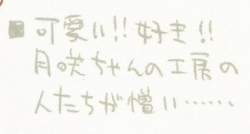 ■可愛い!!好き!!
月咲ちゃんの工房の
人たちが憎い……